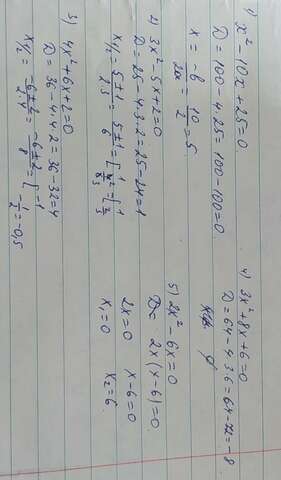 1) x² - 10x + 25 = 0
D = 100 - 4·25 = 100 - 100 = 0
x = -b/2a = 10/2 = 5.
2) 3x² - 5x + 2 = 0
D = 25 - 4·3·2 = 25 - 24 = 1
x₁/₂ = 5±1/2·3 = 5±1/6 = [1
3) 4x² + 6x + 2 = 0
D = 36 - 4·4·2 = 36 - 32 = 4
x₁/₂ = -6±2/2·4 = -6±2/8 = [-1
-1/2 = -0,5
4) 3x² + 8x + 6 = 0
D = 64 - 4·3·6 = 64 - 72 = -8
5) 2x² - 6x = 0
2x(x - 6) = 0
2x = 0 x - 6 = 0
x₁ = 0 x₂ = 6.